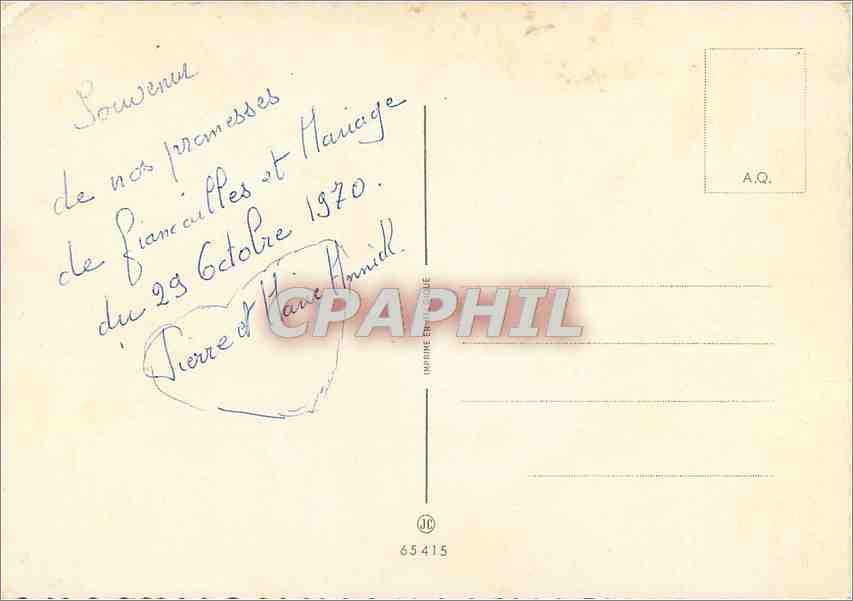 Souvenir
de nos promesses
de fiancailles et Mariage
du 29 Octobre 1970.
Pierre et Marie Annick.
A.Q.
CPAPHIL
IMPRIME EN BELGIQUE
JC
65415